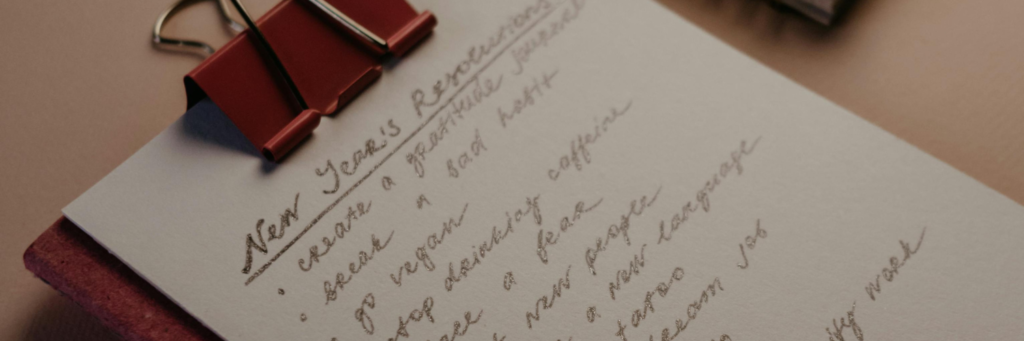 New Year's Resolutions
• create a gratitude journal
• break a bad habit
go vegan
stop drinking caffeine
a fear
new people
a new language
tatoo
job
work